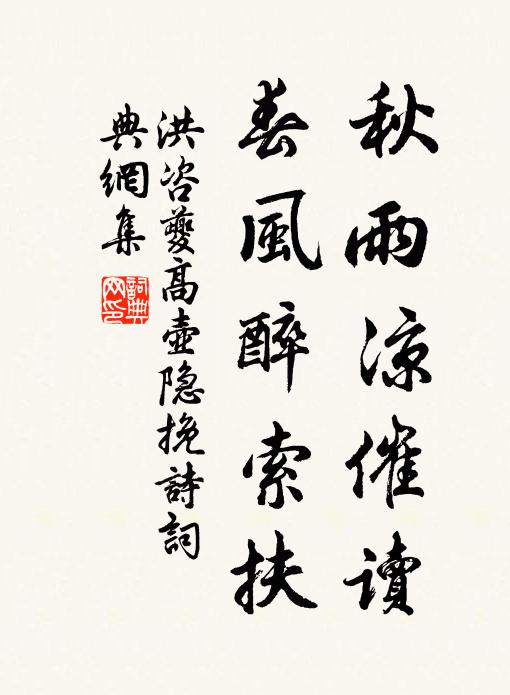 秋雨凉催讀
春風醉索扶
洪咨夔高壺隐挽詩詞
典網集
詞典網印